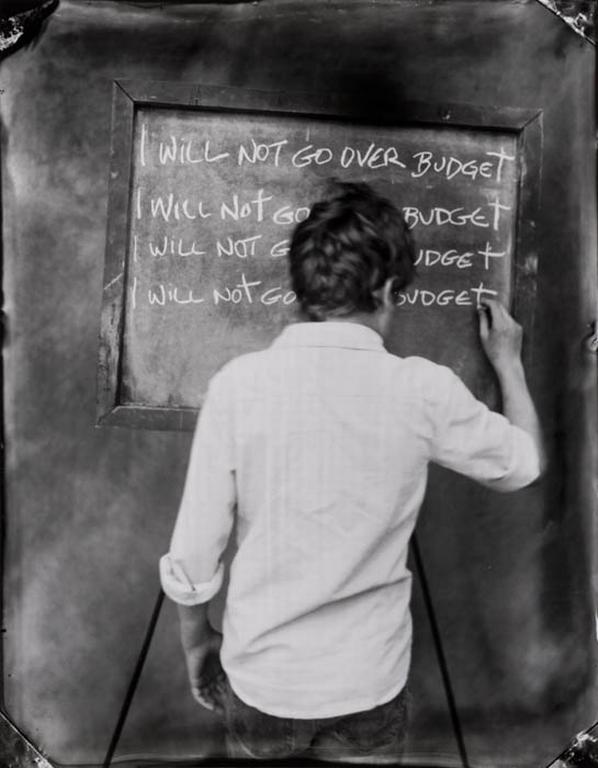 I WILL NOT GO OVER BUDGET
I WILL NOT GO BUDGET
I WILL NOT G UDGET
I WILL NOT GO BUDGET